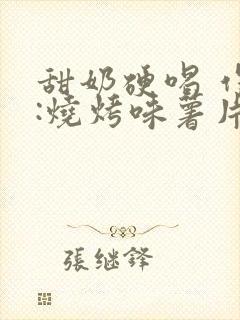 甜奶硬唱
:燒烤味薯片
張继鋒